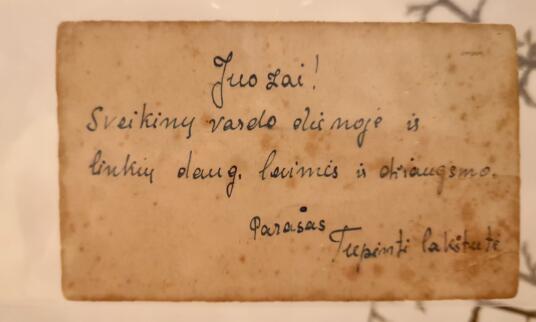 Juozai!
Sveikinų vardo dienoje is
linkių daug. laimės is džiaugsmo.
Parašas
Tupinti lakštutė